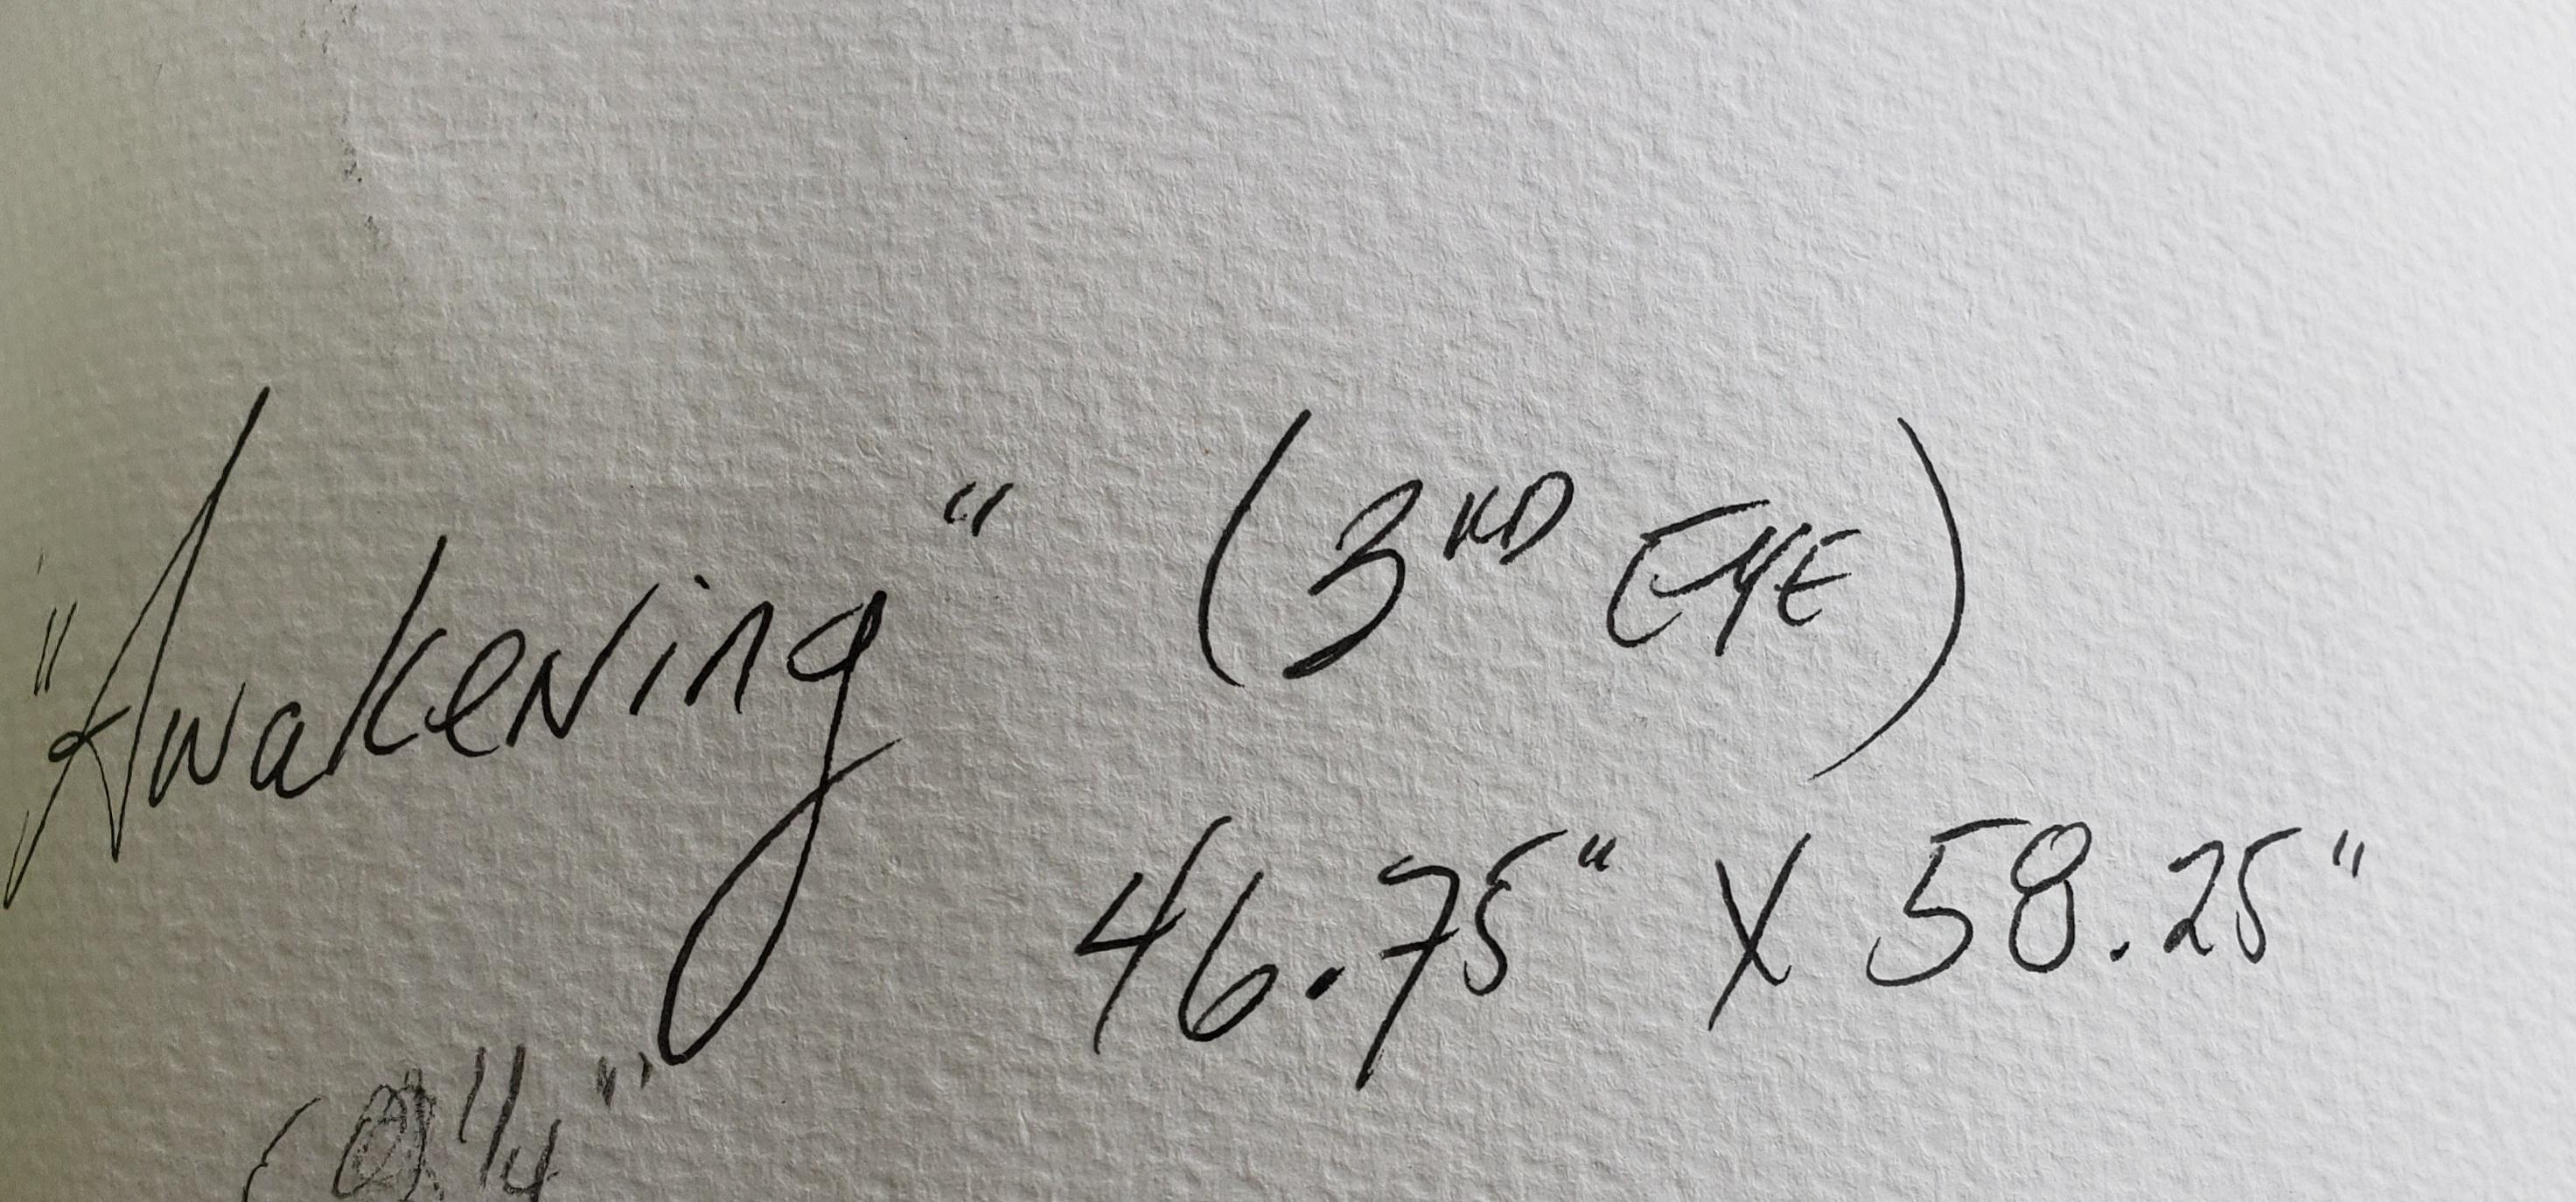 "Awakening" (3RD EYE)
46.75" X 58.25"
1/4"